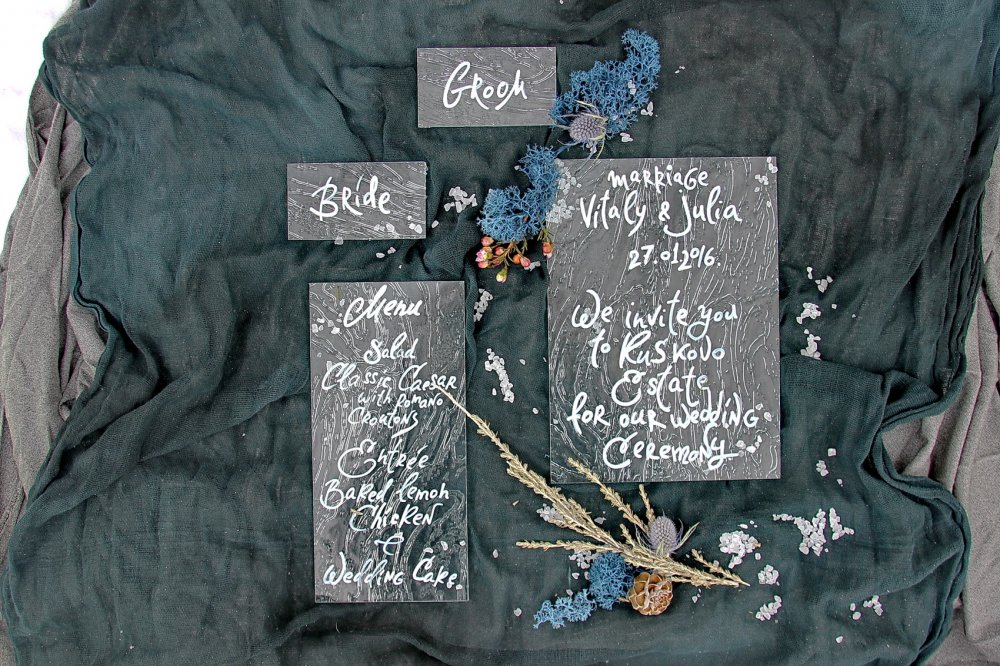 Groom
Bride
Marriage
Vitaly & Julia
27.01.2016.
We invite you
to Ruskovo
Estate
for our wedding
Ceremony.
Menu
Salad
Classic Caesar
with Romano
Croatons
Entree
Baked lemon
Chicken
&
Wedding Cake.